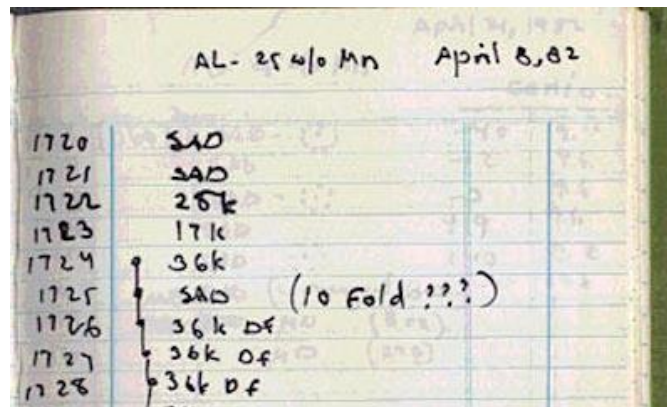 AL- 25 w/o Mn April 8, 82
1720 SAD
1721 SAD
1722 25k
1723 17k
1724 36k
1725 SAD (10 Fold ???)
1726 36k DF
1727 36k DF
1728 36k DF